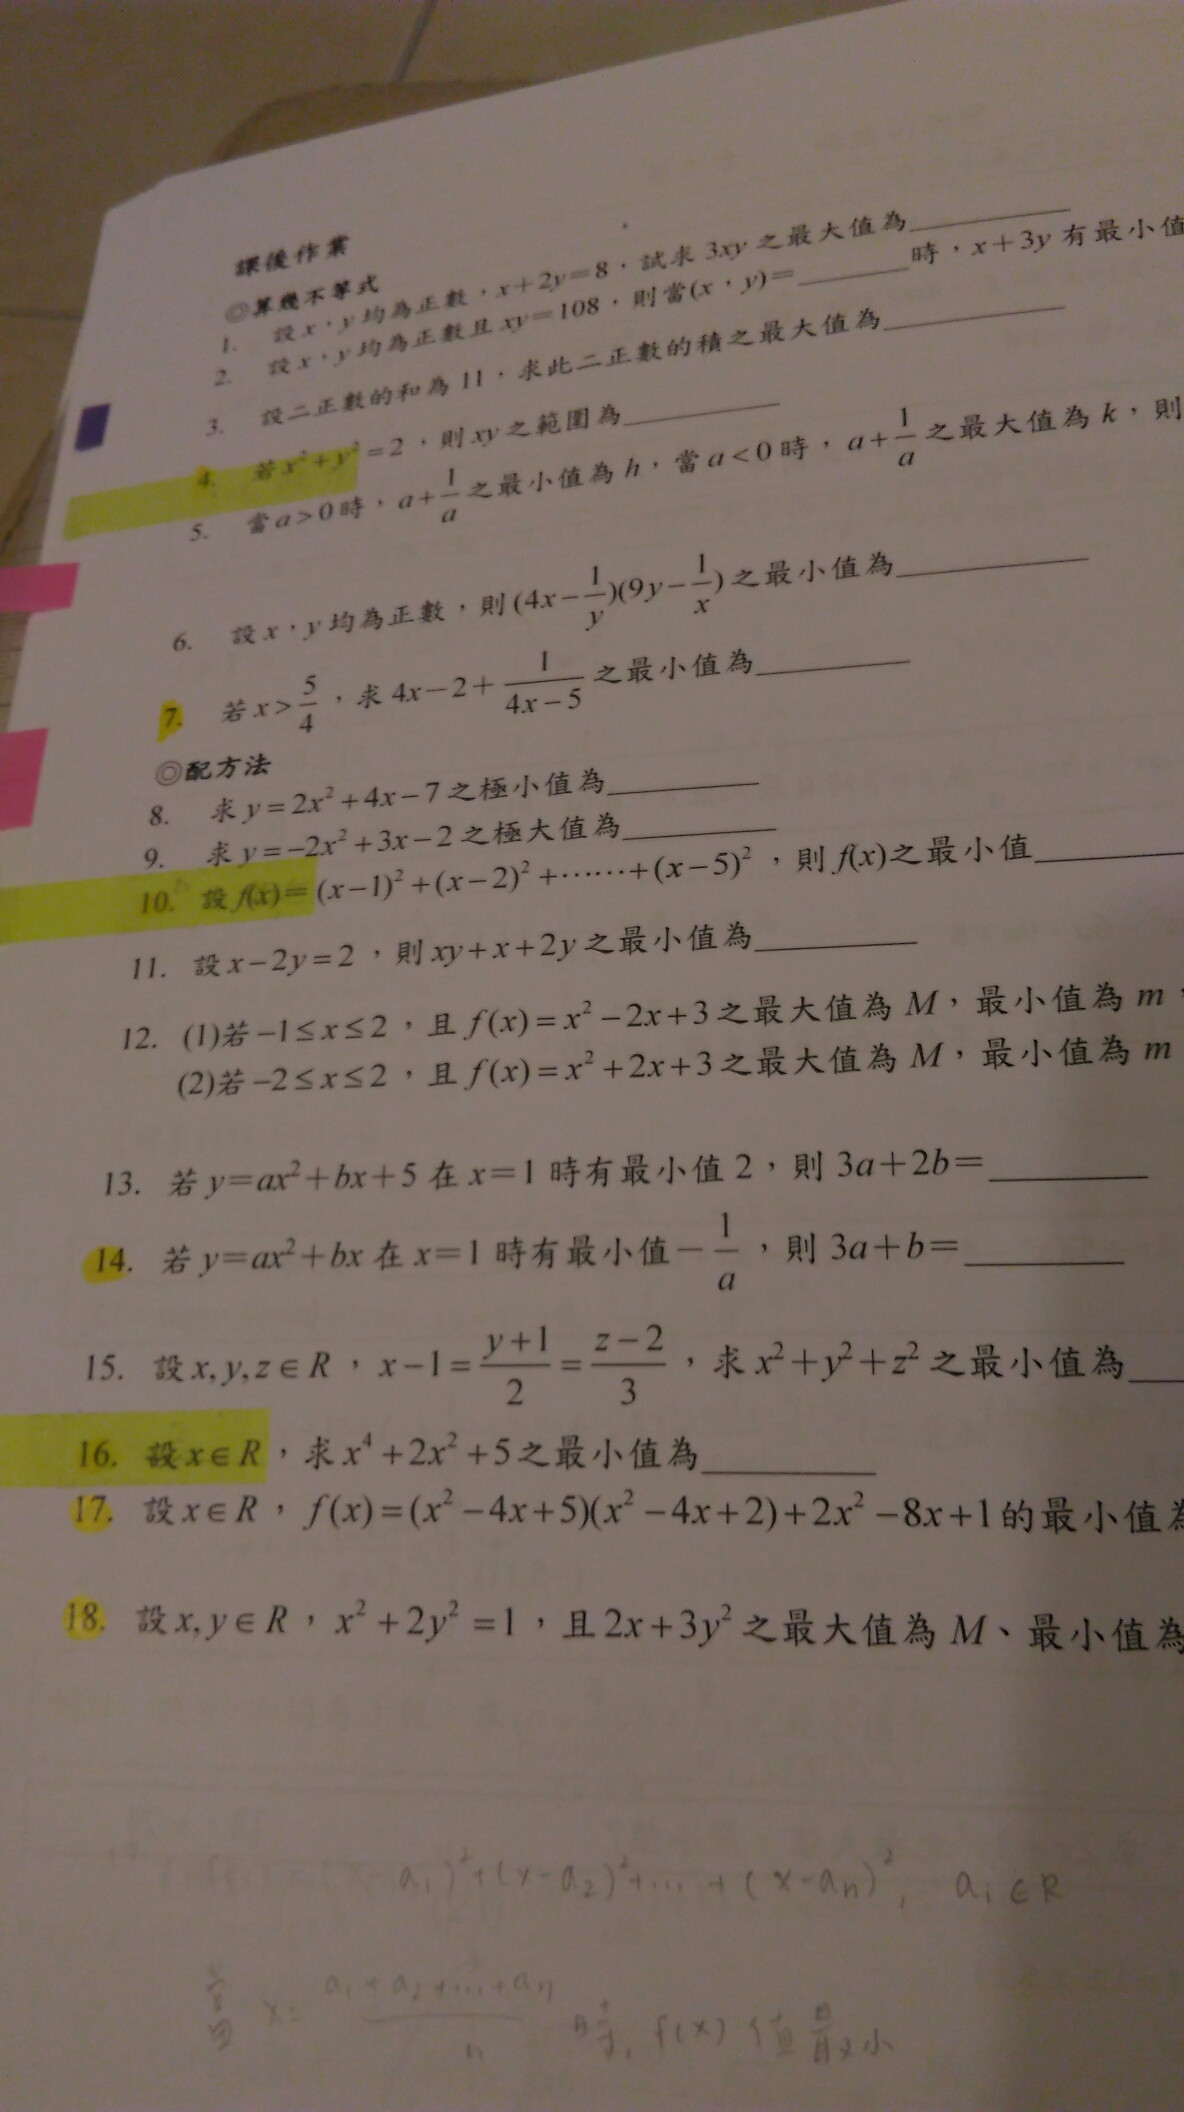 課後作業
◎算幾不等式
1. 設x,y均為正數,x+2y=8,試求3xy之最大值為______
2. 設x,y均為正數且xy=108,則當(x,y)=______時,x+3y有最小值
3. 設二正數的和為11,求此二正數的積之最大值為______
4. 若x²+y²=2,則xy之範圍為______
5. 當a>0時,a+1/a之最小值為h,當a<0時,a+1/a之最大值為k,則
6. 設x,y均為正數,則(4x-1/y)(9y-1/x)之最小值為______
7. 若x>5/4,求4x-2+1/(4x-5)之最小值為______
◎配方法
8. 求y=2x²+4x-7之極小值為______
9. 求y=-2x²+3x-2之極大值為______
10. 設f(x)=(x-1)²+(x-2)²+……+(x-5)²,則f(x)之最小值______
11. 設x-2y=2,則xy+x+2y之最小值為______
12. (1)若-1≤x≤2,且f(x)=x²-2x+3之最大值為M,最小值為m,
(2)若-2≤x≤2,且f(x)=x²+2x+3之最大值為M,最小值為m
13. 若y=ax²+bx+5在x=1時有最小值2,則3a+2b=______
14. 若y=ax²+bx在x=1時有最小值-1/a,則3a+b=______
15. 設x,y,z∈R,x-1=(y+1)/2=(z-2)/3,求x²+y²+z²之最小值為__
16. 設x∈R,求x⁴+2x²+5之最小值為______
17. 設x∈R,f(x)=(x²-4x+5)(x²-4x+2)+2x²-8x+1的最小值為
18. 設x,y∈R,x²+2y²=1,且2x+3y²之最大值為M、最小值為
(x-a₁)²+(x-a₂)²+…+(x-aₙ)², aᵢ∈R
當 x=(a₁+a₂+…+aₙ)/n 時, f(x)值最小